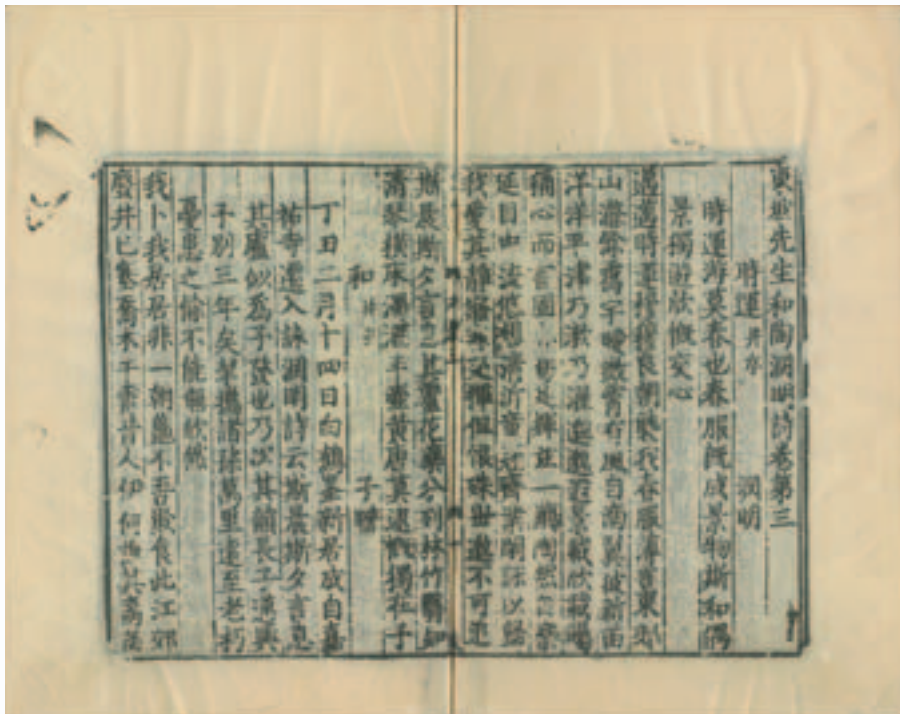 東坡先生和陶淵明詩卷第三
時運并序 淵明
時運游莫春也春服既成景物斯和偶
景獨遊欣慨交心
邁邁時運穆穆良朝襲我春服薄言東郊
山滌餘靄宇曖微霄有風自南翼彼新苗
洋洋平津乃漱乃濯邈邈遐景載欣載矚
稱心而言固易足揮茲一觴陶然自樂
延目中流悠想清沂童冠齊業閒詠以歸
我愛其靜寤寐交揮但恨殊世邈不可追
斯晨斯夕言息其廬花藥分列林竹翳如
清琴橫床濁酒半壺黃唐莫逮慨獨在予
和并引 子瞻
丁丑二月十四日白鶴峯新居成自嘉
祐寺遷入詠淵明詩云斯晨斯夕言息
其廬似爲予發也乃次其韻長子邁與
予別三年矣挈攜諸孫萬里遠至老朽
憂患之餘不能無欣然
我卜我居居非一朝龜不吾欺食此江郊
廢井已塞喬木干霄昔人伊何誰其裔苗